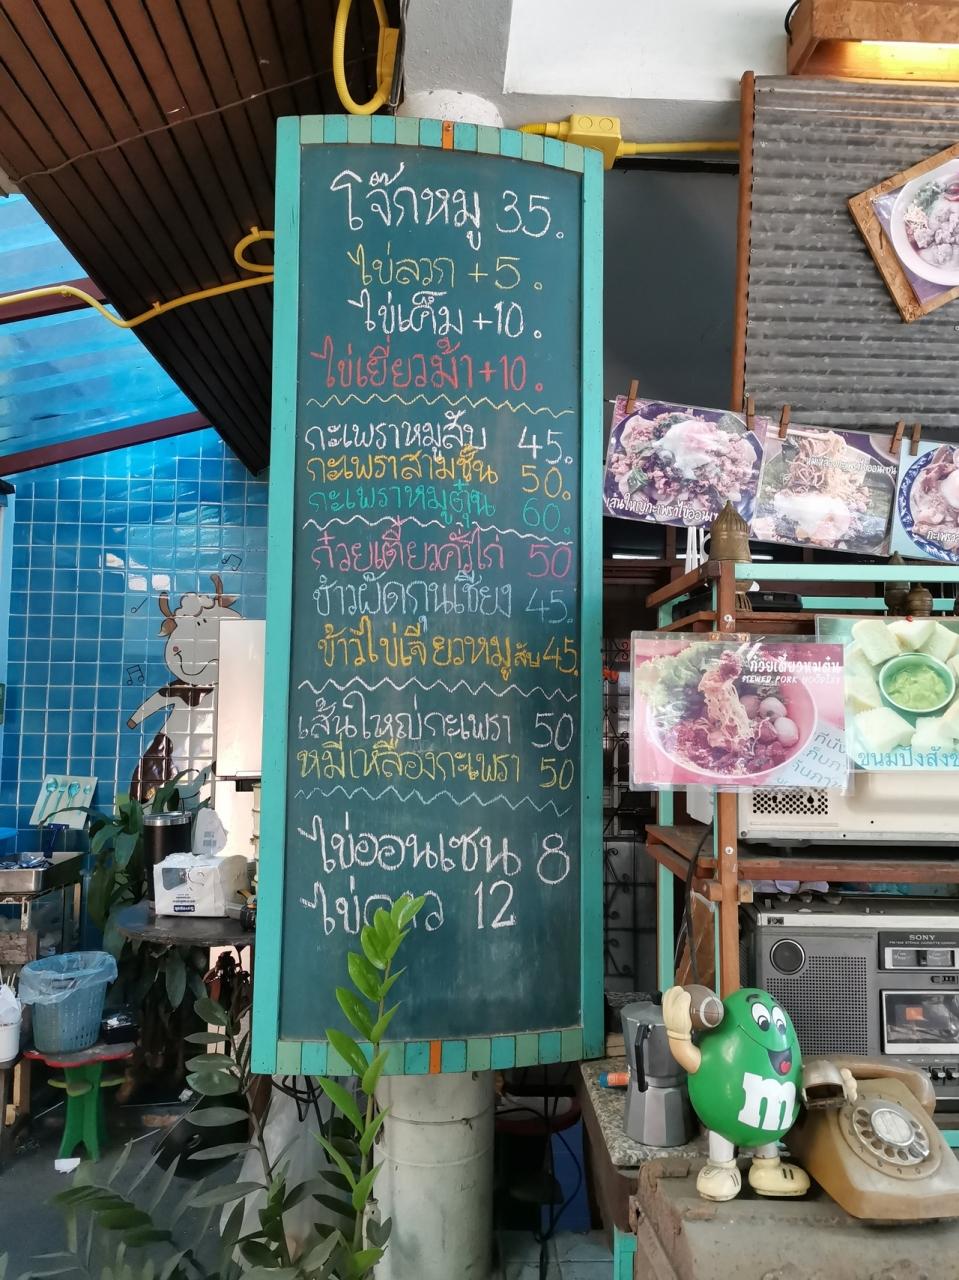 โจ๊กหมู 35.
ไข่ลวก +5.
ไข่เค็ม +10.
ไข่เยี่ยวม้า +10.
กะเพราหมูสับ 45.
กะเพราสามชั้น 50.
กะเพราหมูตุ๋น 60.
ก๋วยเตี๋ยวคั่วไก่ 50
ข้าวผัดกุนเชียง 45.
ข้าวไข่เจียวหมูสับ 45.
เส้นใหญ่กะเพรา 50
หมี่เหลืองกะเพรา 50
ไข่ออนเซน 8
ไข่ดาว 12
เส้นใหญ่กะเพราไข่ออน
หมี่เหลืองกะเพราไข่ออนเซน
ก๋วยเตี๋ยวหมูตุ๋น
STEWED PORK NOODLES
ขนมปังสัง
SONY
m